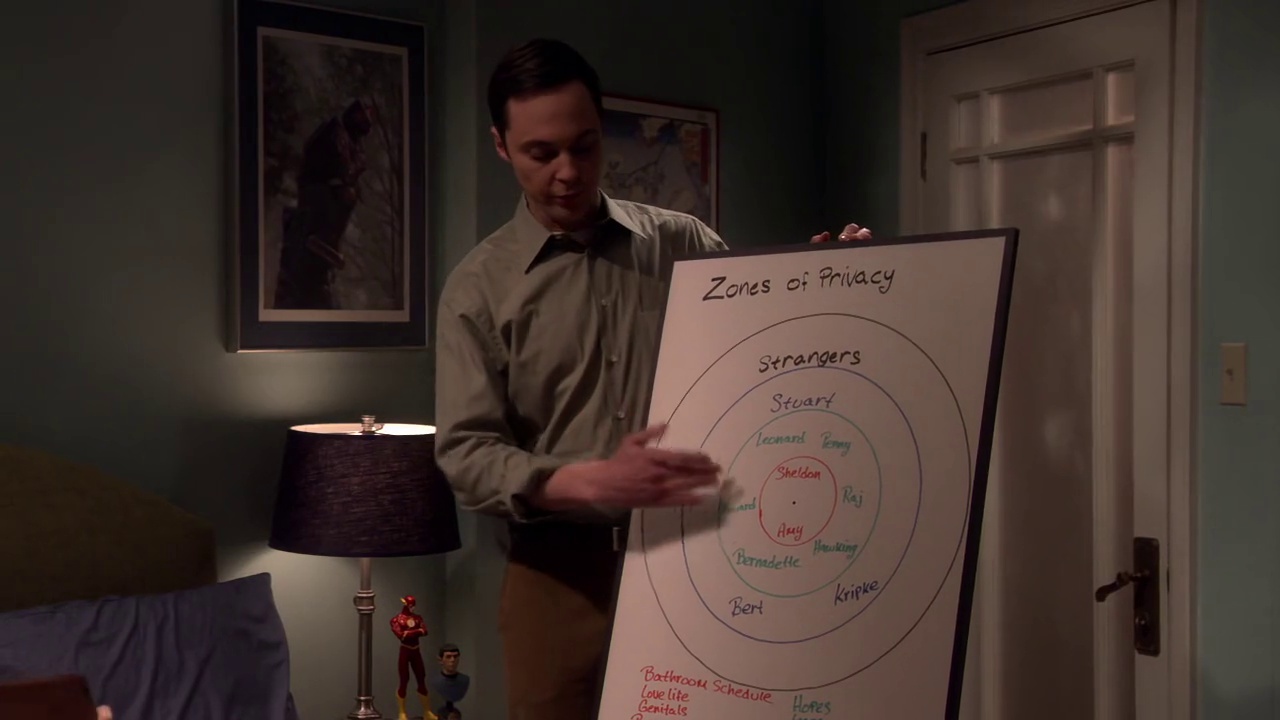 Zones of Privacy
Strangers
Stuart
Leonard Penny
Sheldon
Raj
Amy
Bernadette Hawking
Bert Kripke
Bathroom Schedule
Love life
Genitals
Hopes